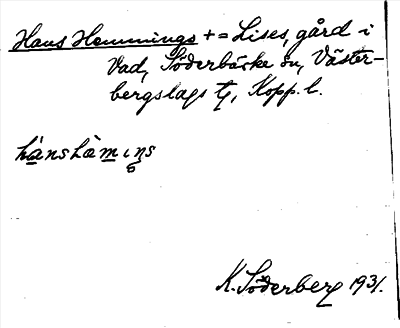 Hans Hemmings += Lises, gård i
Vad, Söderbärke sn, Väster-
bergslags tg, Kopp. l.
hànshàmıŋs
K. Söderberg 1931.